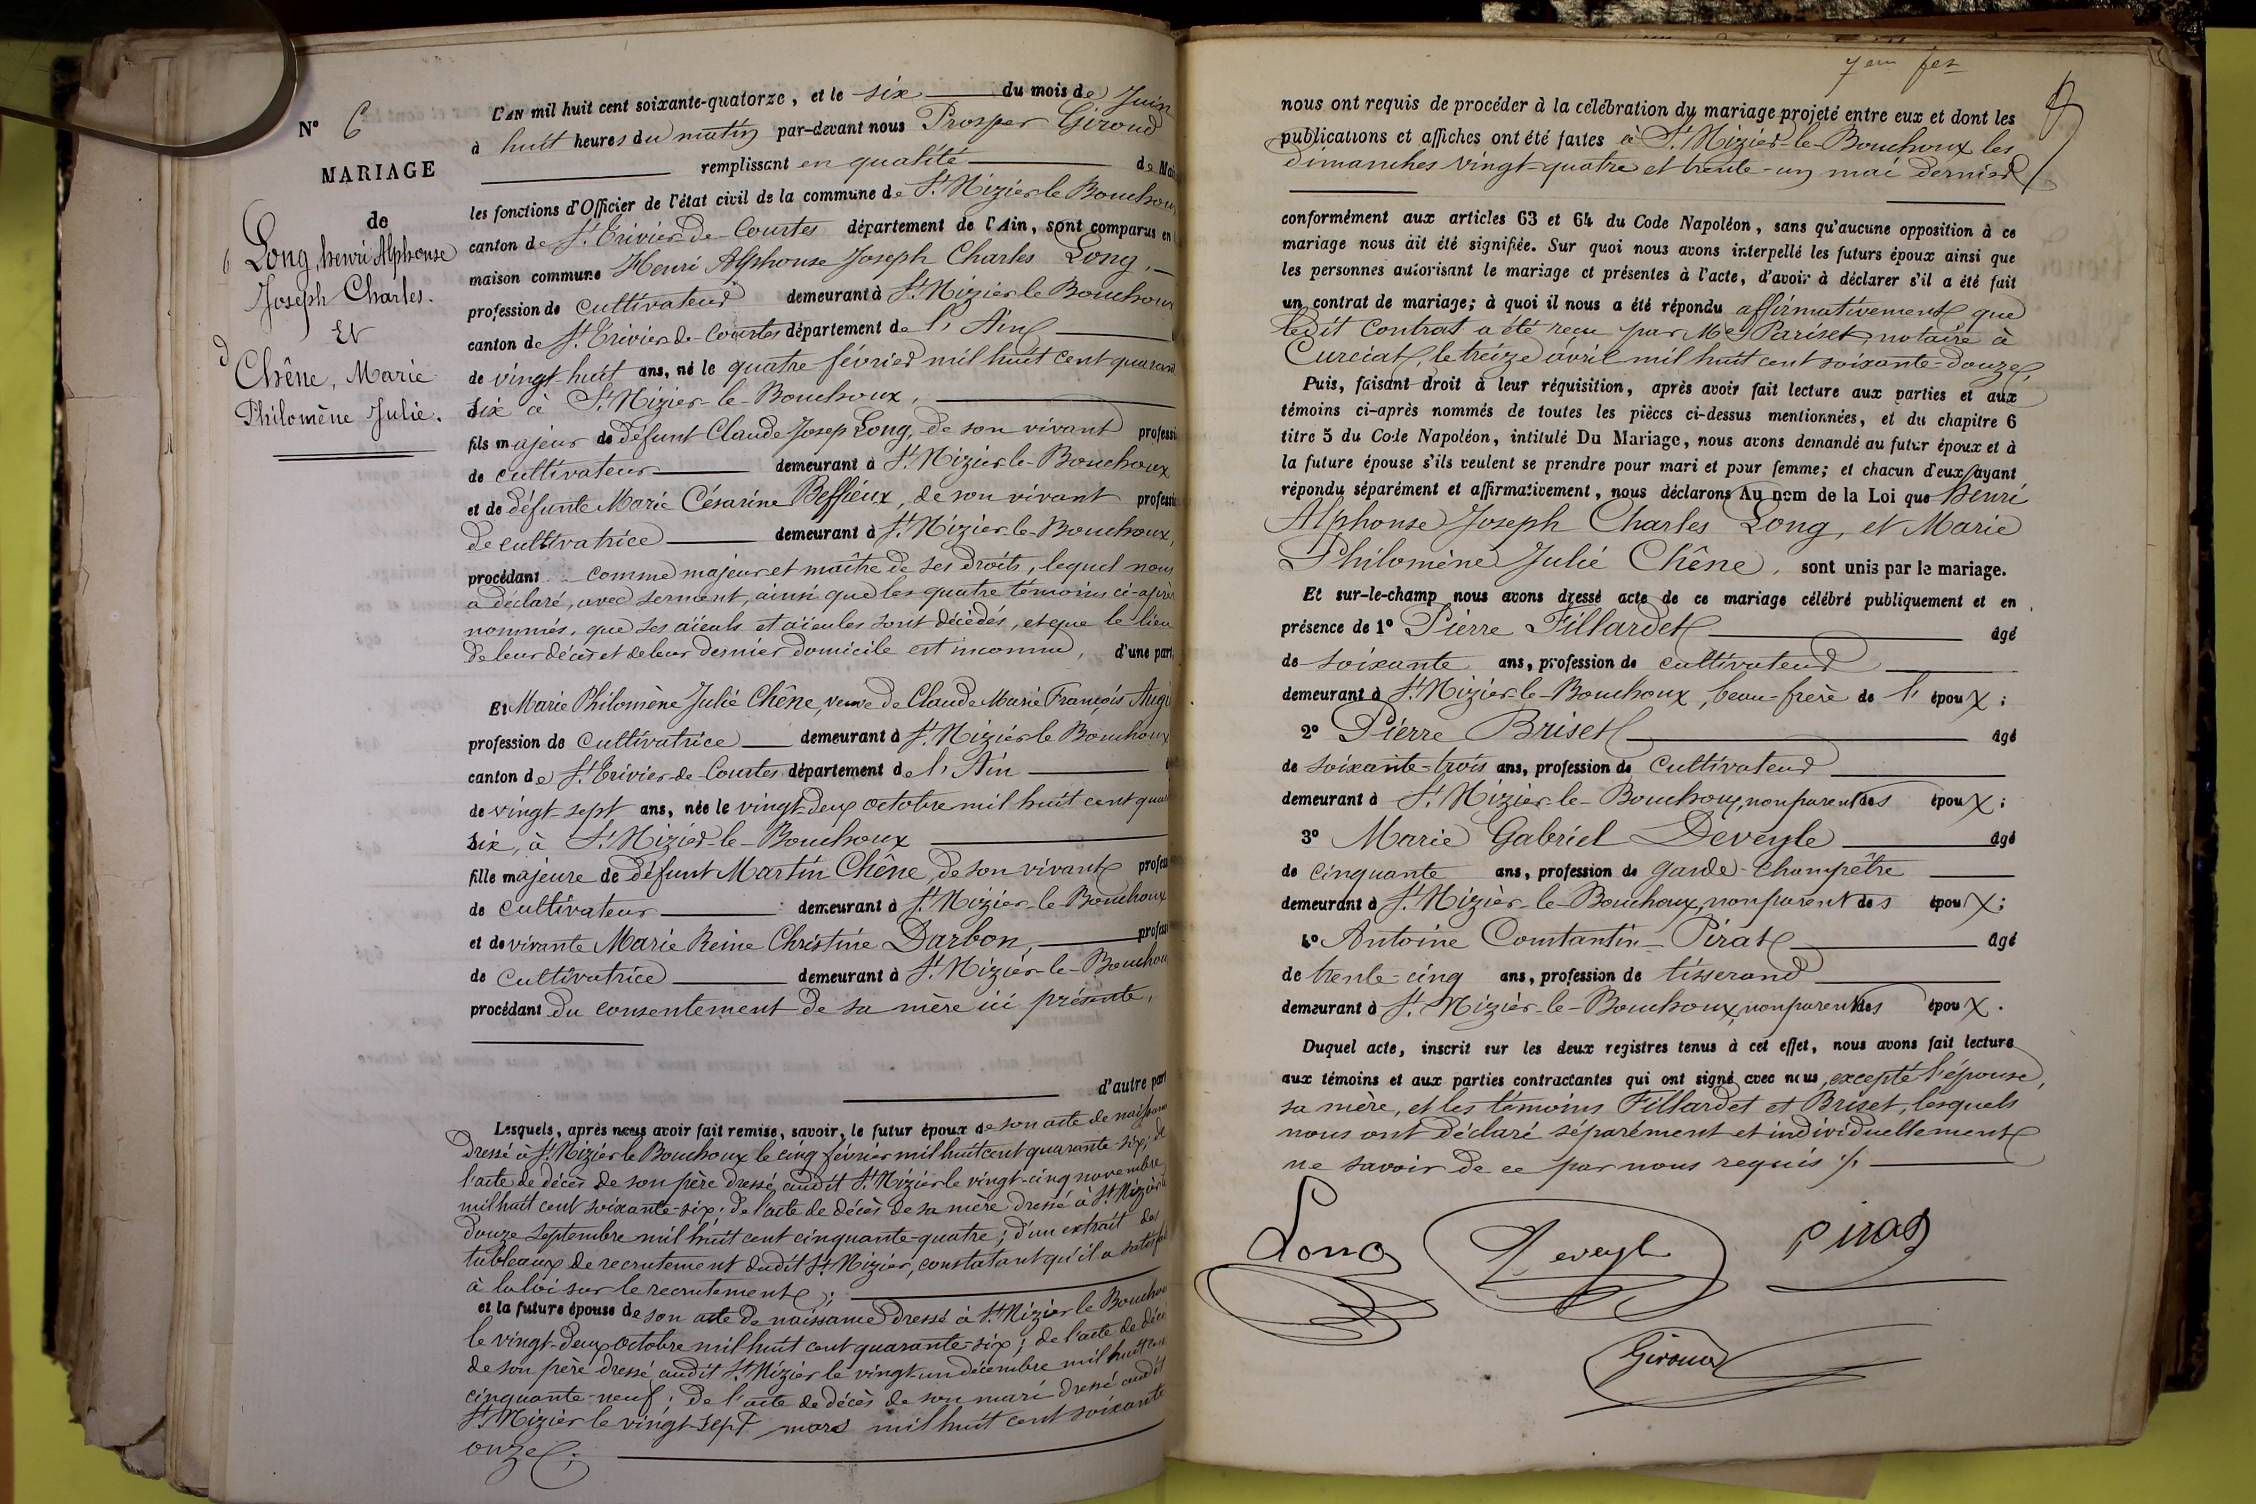 N° 6
MARIAGE
de
Long, henri Alphonse
Joseph Charles.
Et
Chêne, Marie
Philomène Julie.
L'AN mil huit cent soixante-quatorze, et le six du mois de Juin
à huit heures du matin par-devant nous Prosper Giroud
remplissant en qualité de Mai
les fonctions d'Officier de l'état civil de la commune de St. Nizier le Bouchoux
canton de St. Trivier-de-Courtes département de l'Ain, sont comparus en
maison commune Henri Alphonse Joseph Charles Long,
profession de cultivateur demeurant à St. Nizier le Bouchoux
canton de St. Trivier-de-Courtes département de l'Ain
de vingt-huit ans, né le quatre février mil huit cent quaran
six à St. Nizier-le-Bouchoux,
fils majeur de défunt Claude Josep Long, de son vivant professi
de cultivateur demeurant à St. Nizier-le-Bouchoux
et de défunte Marie Césarine Beffieux, de son vivant professi
de cultivatrice demeurant à St. Nizier-le-Bouchoux,
procédant comme majeur et maître de ses droits, lequel nous
a déclaré, avec serment, ainsi que les quatre témoins ci-après
nommés, que ses aïeuls et aïeules sont décédés, et que le lieu
de leur décès et de leur dernier domicile est inconnu, d'une part,
Et Marie Philomène Julie Chêne, veuve de Claude Marie François
profession de cultivatrice demeurant à St. Nizier le Bouchoux
canton de St. Trivier-de-Courtes département de l'Ain
de vingt-sept ans, née le vingt-deux octobre mil huit cent qua
six, à St. Nizier-le-Bouchoux
fille majeure de défunt Martin Chêne, de son vivant profes
de cultivateur demeurant à St. Nizier-le-Bouchoux
et de vivante Marie Reine Christine Darbon, profes
de cultivatrice demeurant à St. Nizier-le-Bouchou
procédant du consentement de sa mère ici présente,
d'autre part
Lesquels, après nous avoir fait remise, savoir, le futur époux de son acte de naissance
dressé à St. Nizier le Bouchoux le cinq février mil huit cent quarante-six; de
l'acte de décès de son père dressé audit St. Nizier le vingt-cinq novembre
mil huit cent soixante-six; de l'acte de décès de sa mère dressé à St. Nizier
douze septembre mil huit cent cinquante-quatre; d'un extrait des
tableaux de recrutement dudit St. Nizier, constatant qu'il a satisfait
à la loi sur le recrutement;
et la future épouse de son acte de naissance dressé à St. Nizier le Bouchou
le vingt-deux octobre mil huit cent quarante-six; de l'acte de décè
de son père dressé audit St. Nizier le vingt-un décembre mil huit cen
cinquante-neuf; de l'acte de décès de son mari dressé audit
St. Nizier le vingt-sept mars mil huit cent soixante
onze;
7em fet
nous ont requis de procéder à la célébration du mariage projeté entre eux et dont les
publications et affiches ont été faites à St. Nizier-le-Bouchoux les
dimanches vingt-quatre et trente-un mai dernier
conformément aux articles 63 et 64 du Code Napoléon, sans qu'aucune opposition à ce
mariage nous ait été signifiée. Sur quoi nous avons interpellé les futurs époux ainsi que
les personnes autorisant le mariage et présentes à l'acte, d'avoir à déclarer s'il a été fait
un contrat de mariage; à quoi il nous a été répondu affirmativement que
ledit contrat a été reçu par Me Pariset, notaire à
Curciat, le treize avril mil huit cent soixante-douze,
Puis, faisant droit à leur réquisition, après avoir fait lecture aux parties et aux
témoins ci-après nommés de toutes les pièces ci-dessus mentionnées, et du chapitre 6
titre 5 du Code Napoléon, intitulé Du Mariage, nous avons demandé au futur époux et à
la future épouse s'ils veulent se prendre pour mari et pour femme; et chacun d'eux ayant
répondu séparément et affirmativement, nous déclarons Au nom de la Loi que henri
Alphonse Joseph Charles Long, et Marie
Philomène Julie Chêne, sont unis par le mariage.
Et sur-le-champ nous avons dressé acte de ce mariage célébré publiquement et en
présence de 1° Pierre Fillardet âgé
de soixante ans, profession de cultivateur
demeurant à St. Nizier-le-Bouchoux, beau-frère de l'époux;
2° Pierre Briset âgé
de soixante-trois ans, profession de cultivateur
demeurant à St. Nizier-le-Bouchoux, non parent des époux;
3° Marie Gabriel Deveyle âgé
de cinquante ans, profession de garde-Champêtre
demeurant à St. Nizier-le-Bouchoux, non parent des époux;
4° Antoine Constantin Pirat âgé
de trente-cinq ans, profession de tisserand
demeurant à St. Nizier-le-Bouchoux, non parent des époux.
Duquel acte, inscrit sur les deux registres tenus à cet effet, nous avons fait lecture
aux témoins et aux parties contractantes qui ont signé avec nous, excepté l'épouse,
sa mère, et les témoins Fillardet et Briset, lesquels
nous ont déclaré séparément et individuellement
ne savoir de ce par nous requis ./.
Long Deveyle Pirat
Giroud